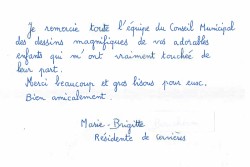 Je remercie toute l'équipe du Conseil Municipal
des dessins magnifiques de vos adorables
enfants qui m'ont vraiment touchée de
leur part.
Merci beaucoup et gros bisous pour eux.
Bien amicalement.
Marie-Brigitte
Résidente de Cervières